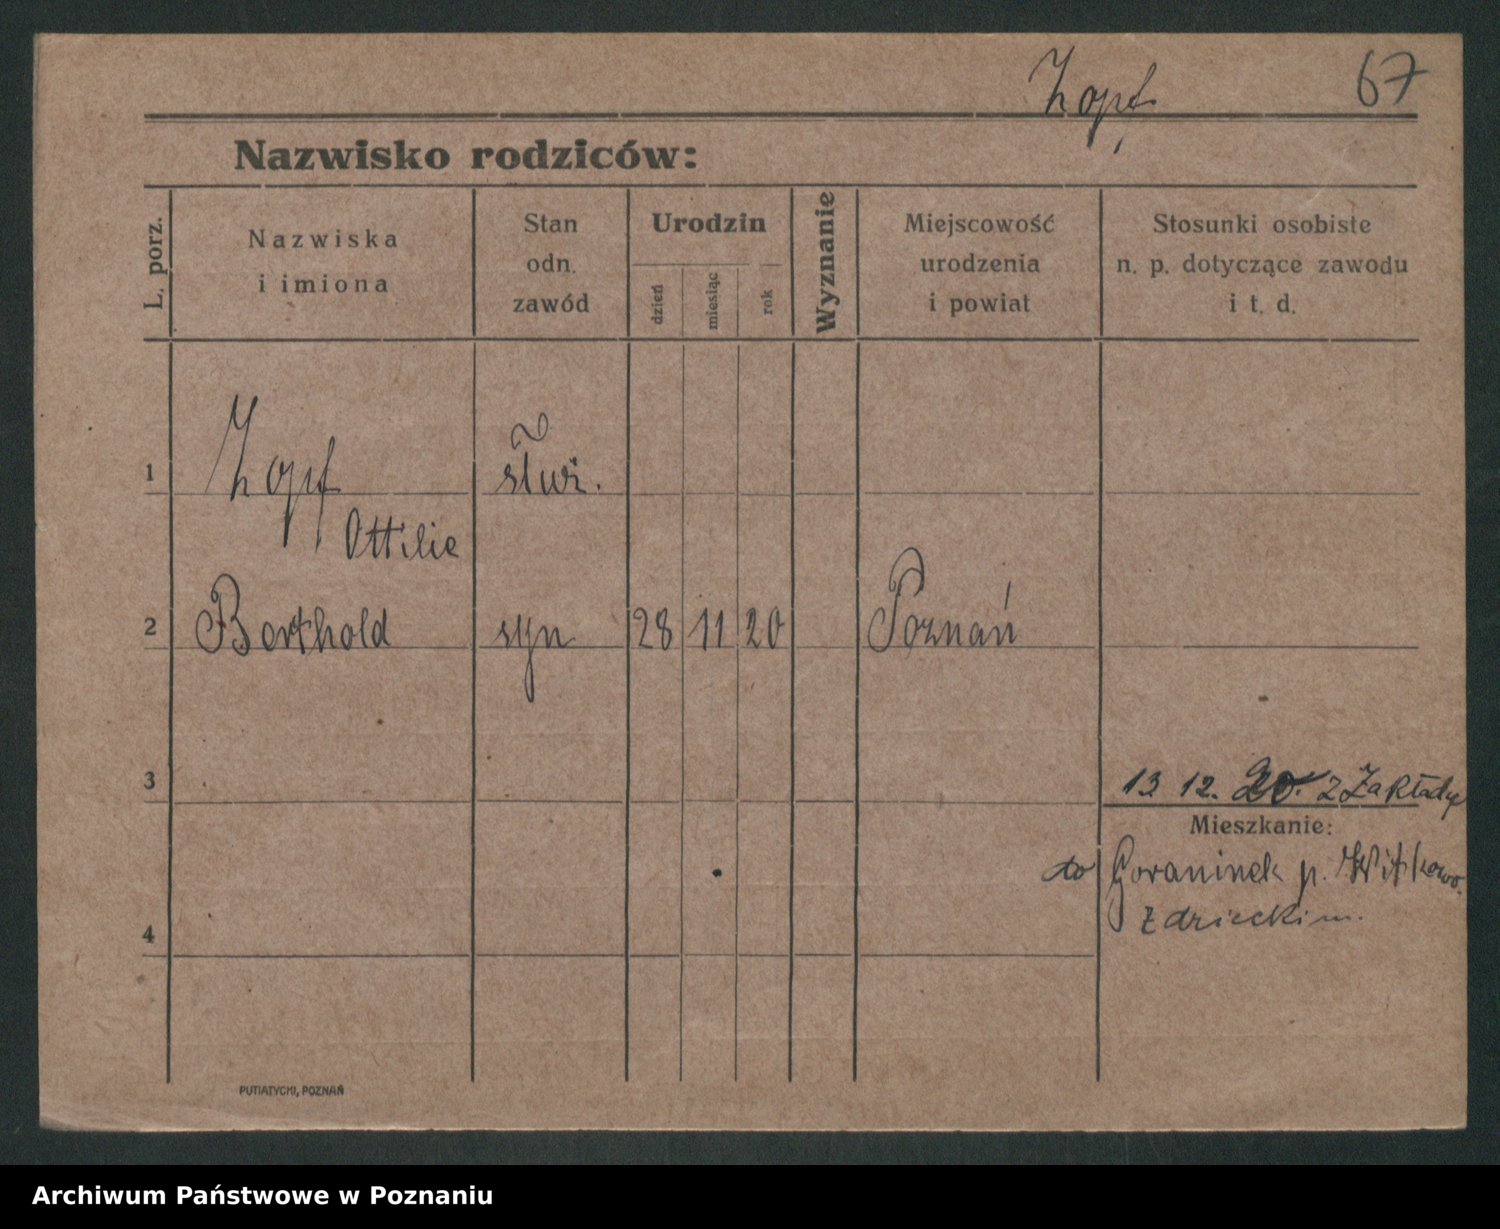 Zopf 67
Nazwisko rodziców:
L. porz.
Nazwiska
i imiona
Stan
odn.
zawód
Urodzin
dzień
miesiąc
rok
Wyznanie
Miejscowość
urodzenia
i powiat
Stosunki osobiste
n. p. dotyczące zawodu
i t. d.
1 Zopf
Ottilie
2 Berthold syn 28 11 20 Poznań
3
13 12. 20. z Zakładu
Mieszkanie:
do Goraninek p. Witkowo.
z dzieckiem.
4
PUTIATYCKI, POZNAŃ
Archiwum Państwowe w Poznaniu